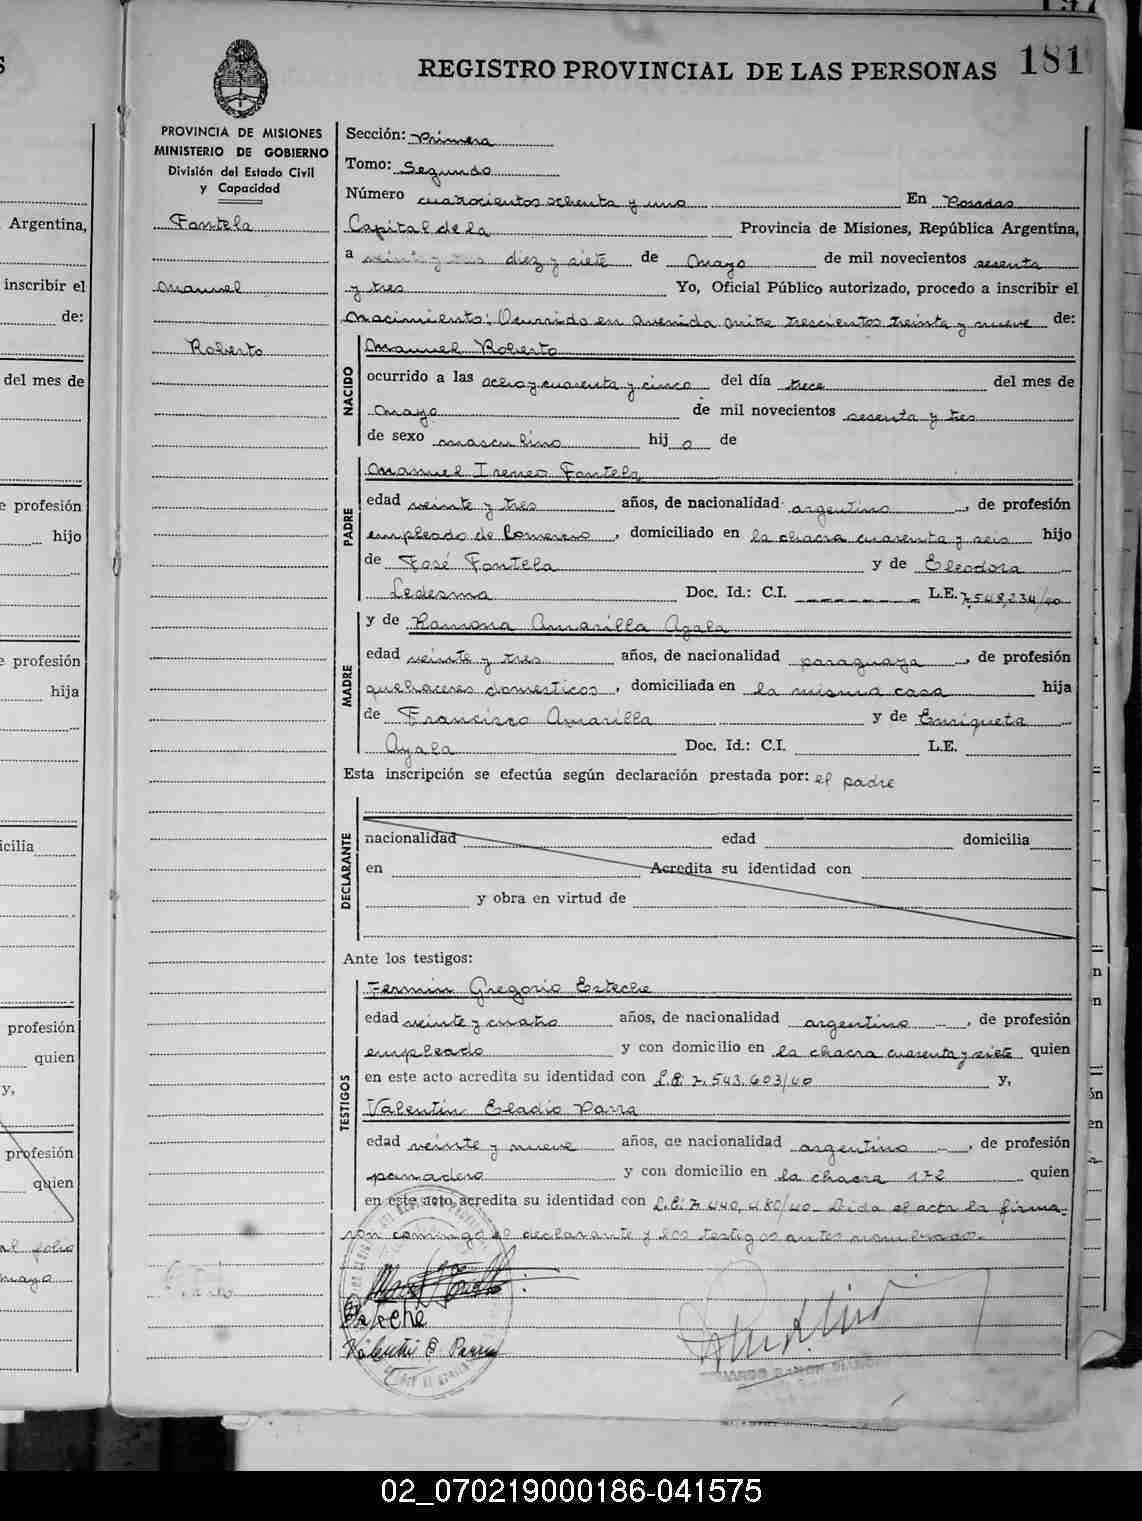 REGISTRO PROVINCIAL DE LAS PERSONAS 181
PROVINCIA DE MISIONES
MINISTERIO DE GOBIERNO
División del Estado Civil
y Capacidad
Fontela
Manuel
Roberto
Sección: Primera
Tomo: Segundo
Número cuatrocientos ochenta y uno En Posadas
Capital de la Provincia de Misiones, República Argentina,
a veinte y tres diez y siete de mayo de mil novecientos sesenta
y tres Yo, Oficial Público autorizado, procedo a inscribir el
Nacimiento: Ocurrido en avenida mitre trescientos treinta y nueve de:
NACIDO
Manuel Roberto
ocurrido a las cero y cuarenta y cinco del día trece del mes de
Mayo de mil novecientos sesenta y tres
de sexo masculino hij o de
PADRE
Manuel Ireneo Fontela
edad veinte y tres años, de nacionalidad argentino, de profesión
empleado de Comercio, domiciliado en la chacra cuarenta y seis hijo
de José Fontela y de Eleodora
Ledesma Doc. Id.: C.I. L.E. 7.548,234/40
MADRE
y de Ramona Amarilla Ayala
edad veinte y tres años, de nacionalidad paraguaya, de profesión
quehaceres domesticos, domiciliada en la misma casa hija
de Francisco Amarilla y de Enriqueta
Ayala Doc. Id.: C.I. L.E.
Esta inscripción se efectúa según declaración prestada por: el padre
DECLARANTE
nacionalidad edad domicilia
en Acredita su identidad con
y obra en virtud de
Ante los testigos:
TESTIGOS
Fermin Gregorio Esteche
edad veinte y cuatro años, de nacionalidad argentino, de profesión
empleado y con domicilio en la chacra cuarenta y siete quien
en este acto acredita su identidad con L.E. 7.543.603/40 y,
Valentin Eladio Parra
edad veinte y nueve años, de nacionalidad argentino, de profesión
panadero y con domicilio en la chacra 172 quien
en este acto acredita su identidad con L.E. 7.440,480/40. Leida el acta la firma-
ron conmigo el declarante y los testigos antes nombrados.
Esteche
Valentin E Parra
Argentina,
inscribir el
de:
del mes de
e profesión
hijo
e profesión
hija
icilia
profesión
quien
y,
profesión
quien
folio
mayo
02_070219000186-041575